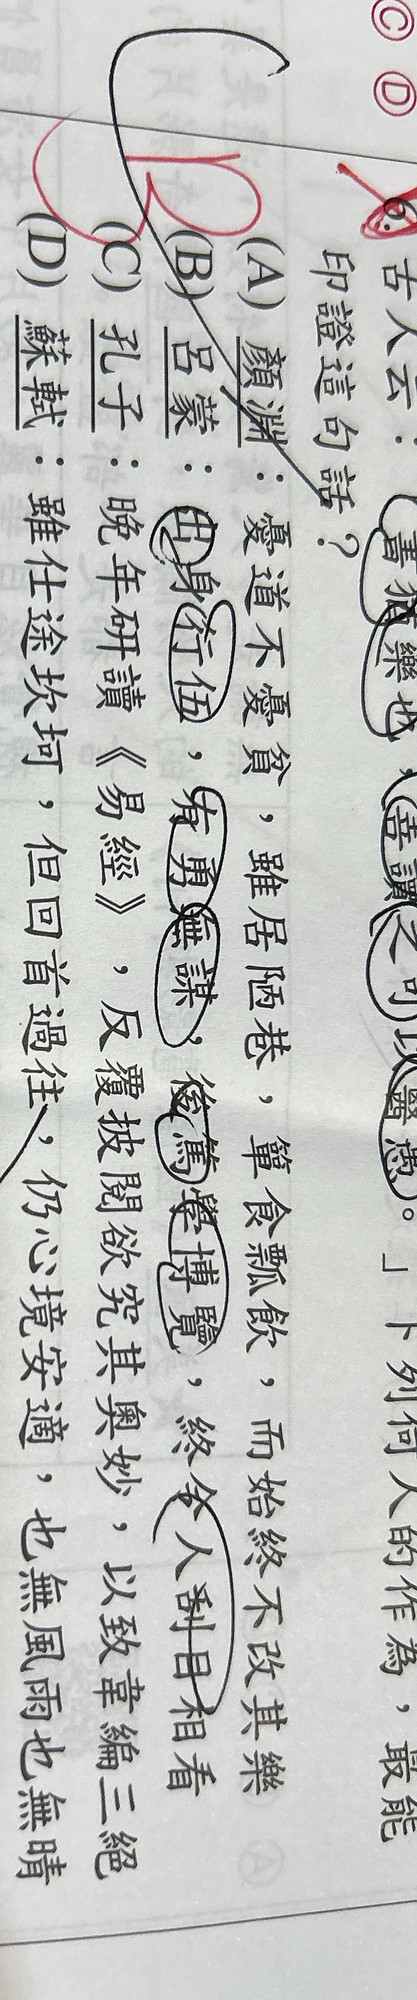 Ⓒ Ⓓ
6. 古人云：「書猶藥也，善讀之可以醫愚。」下列何人的作為，最能
印證這句話？
(A) 顏淵：憂道不憂貧，雖居陋巷，簞食瓢飲，而始終不改其樂
(B) 呂蒙：出身行伍，有勇無謀，後篤學博覽，終令人刮目相看
(C) 孔子：晚年研讀《易經》，反覆披閱欲究其奧妙，以致韋編三絕
(D) 蘇軾：雖仕途坎坷，但回首過往，仍心境安適，也無風雨也無晴